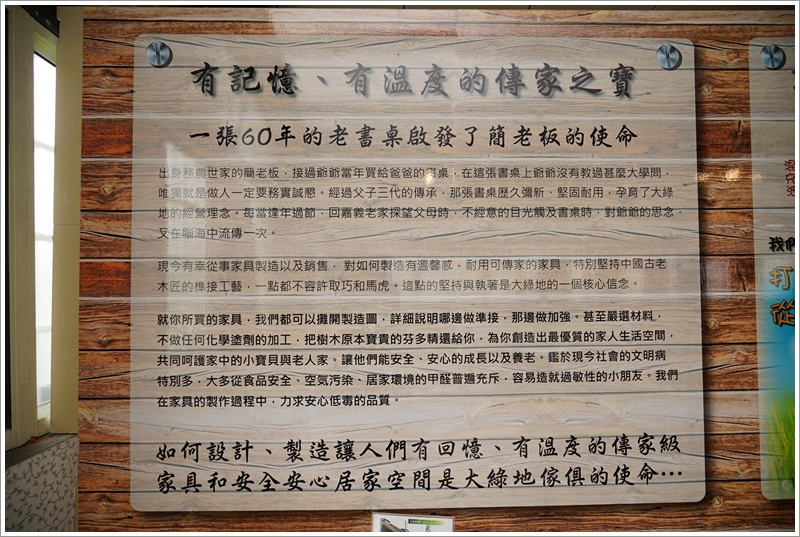 有記憶、有溫度的傳家之寶
一張60年的老書桌啟發了簡老板的使命
出身務農世家的簡老板，接過爺爺當年買給爸爸的書桌，在這張書桌上爺爺沒有教過甚麼大學問，
唯獨就是做人一定要務實誠懇。經過父子三代的傳承，那張書桌歷久彌新，堅固耐用，孕育了大綠
地的經營理念。每當逢年過節，回嘉義老家探望父母時，不經意的目光觸及書桌時，對爺爺的思念，
又在腦海中流傳一次。
現今有幸從事家具製造以及銷售， 對如何製造有溫馨感，耐用可傳家的家具，特別堅持中國古老
木匠的榫接工藝，一點都不容許取巧和馬虎。這點的堅持與執著是大綠地的一個核心信念。
就你所買的家具，我們都可以攤開製造圖，詳細說明哪邊做準接，那邊做加強。甚至嚴選材料，
不做任何化學塗劑的加工，把樹木原本寶貴的芬多精還給你，為你創造出最優質的家人生活空間，
共同呵護家中的小寶貝與老人家。讓他們能安全、安心的成長以及養老。鑑於現今社會的文明病
特別多，大多從食品安全、空氣污染、居家環境的甲醛普遍充斥，容易造就過敏性的小朋友。我們
在家具的製作過程中，力求安心低毒的品質。
如何設計、製造讓人們有回憶、有溫度的傳家級
家具和安全安心居家空間是大綠地傢俱的使命…
我們
打
從